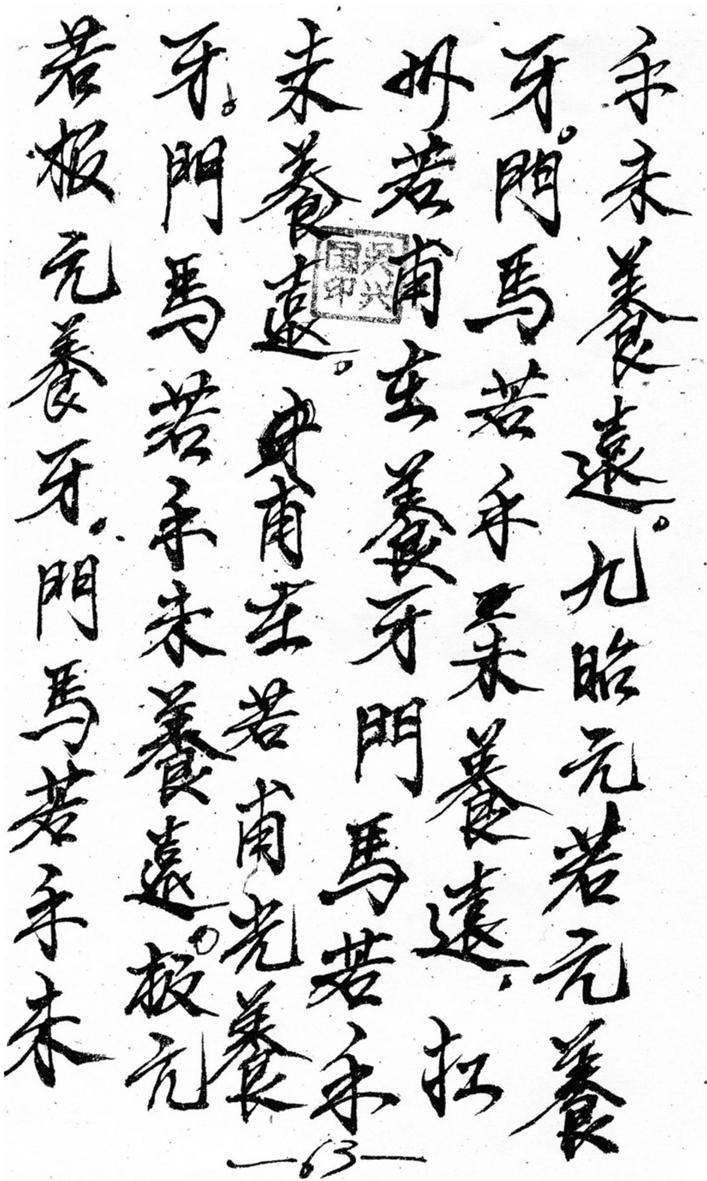 手未養遠。九昭元若元養
牙。門馬若手未養遠。松
州若甫在養牙門馬若手
未養遠。甫在若甫光養
牙。門馬若手未養遠。板元
若板元養牙。門馬若手未
吳兴
国印
—63—